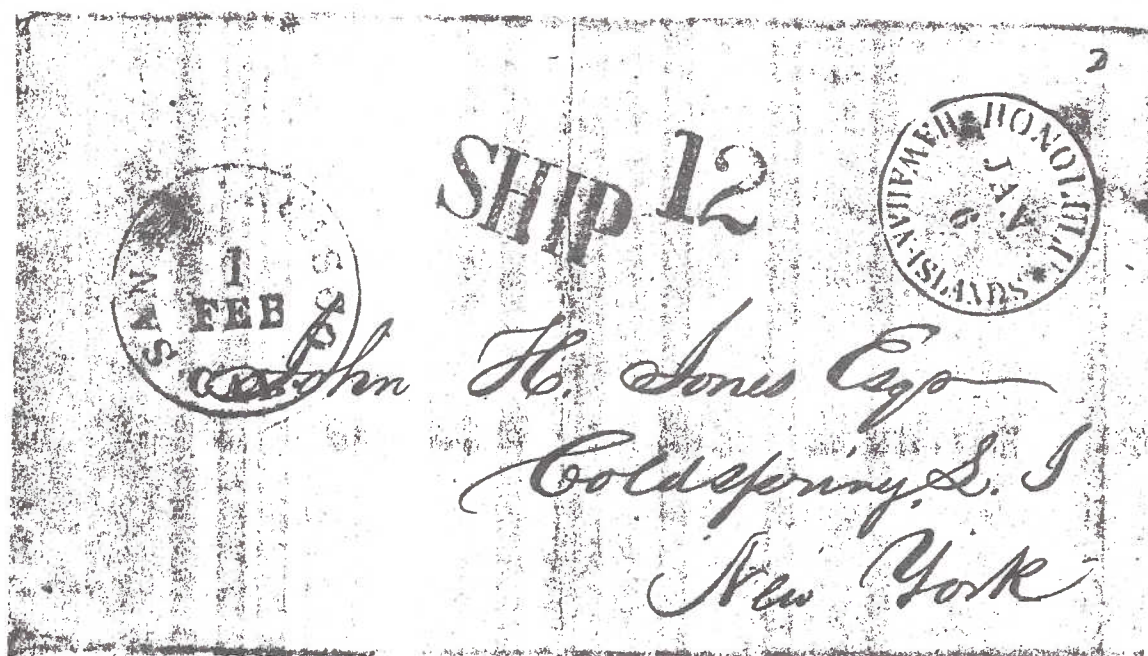 SHIP 12
HONOLULU * HAWAIIAN-ISLANDS *
JAN
6
SAN
1
FEB
CAL.
John H. Jones Esqr
Coldspring, L. I
New York